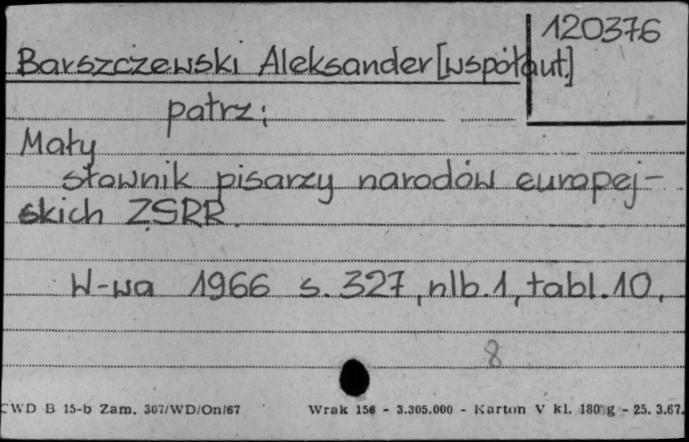 120376
Barszczewski Aleksander [współaut.]
patrz:
Mały
słownik pisarzy narodów europej-
skich ZSRR
W-wa 1966 s. 327, nlb. 1, tabl. 10.
8
CWD B 15-b Zam. 307/WD/On/67 Wrak 156 - 3.305.000 - Karton V kl. 180 g - 25. 3.67.